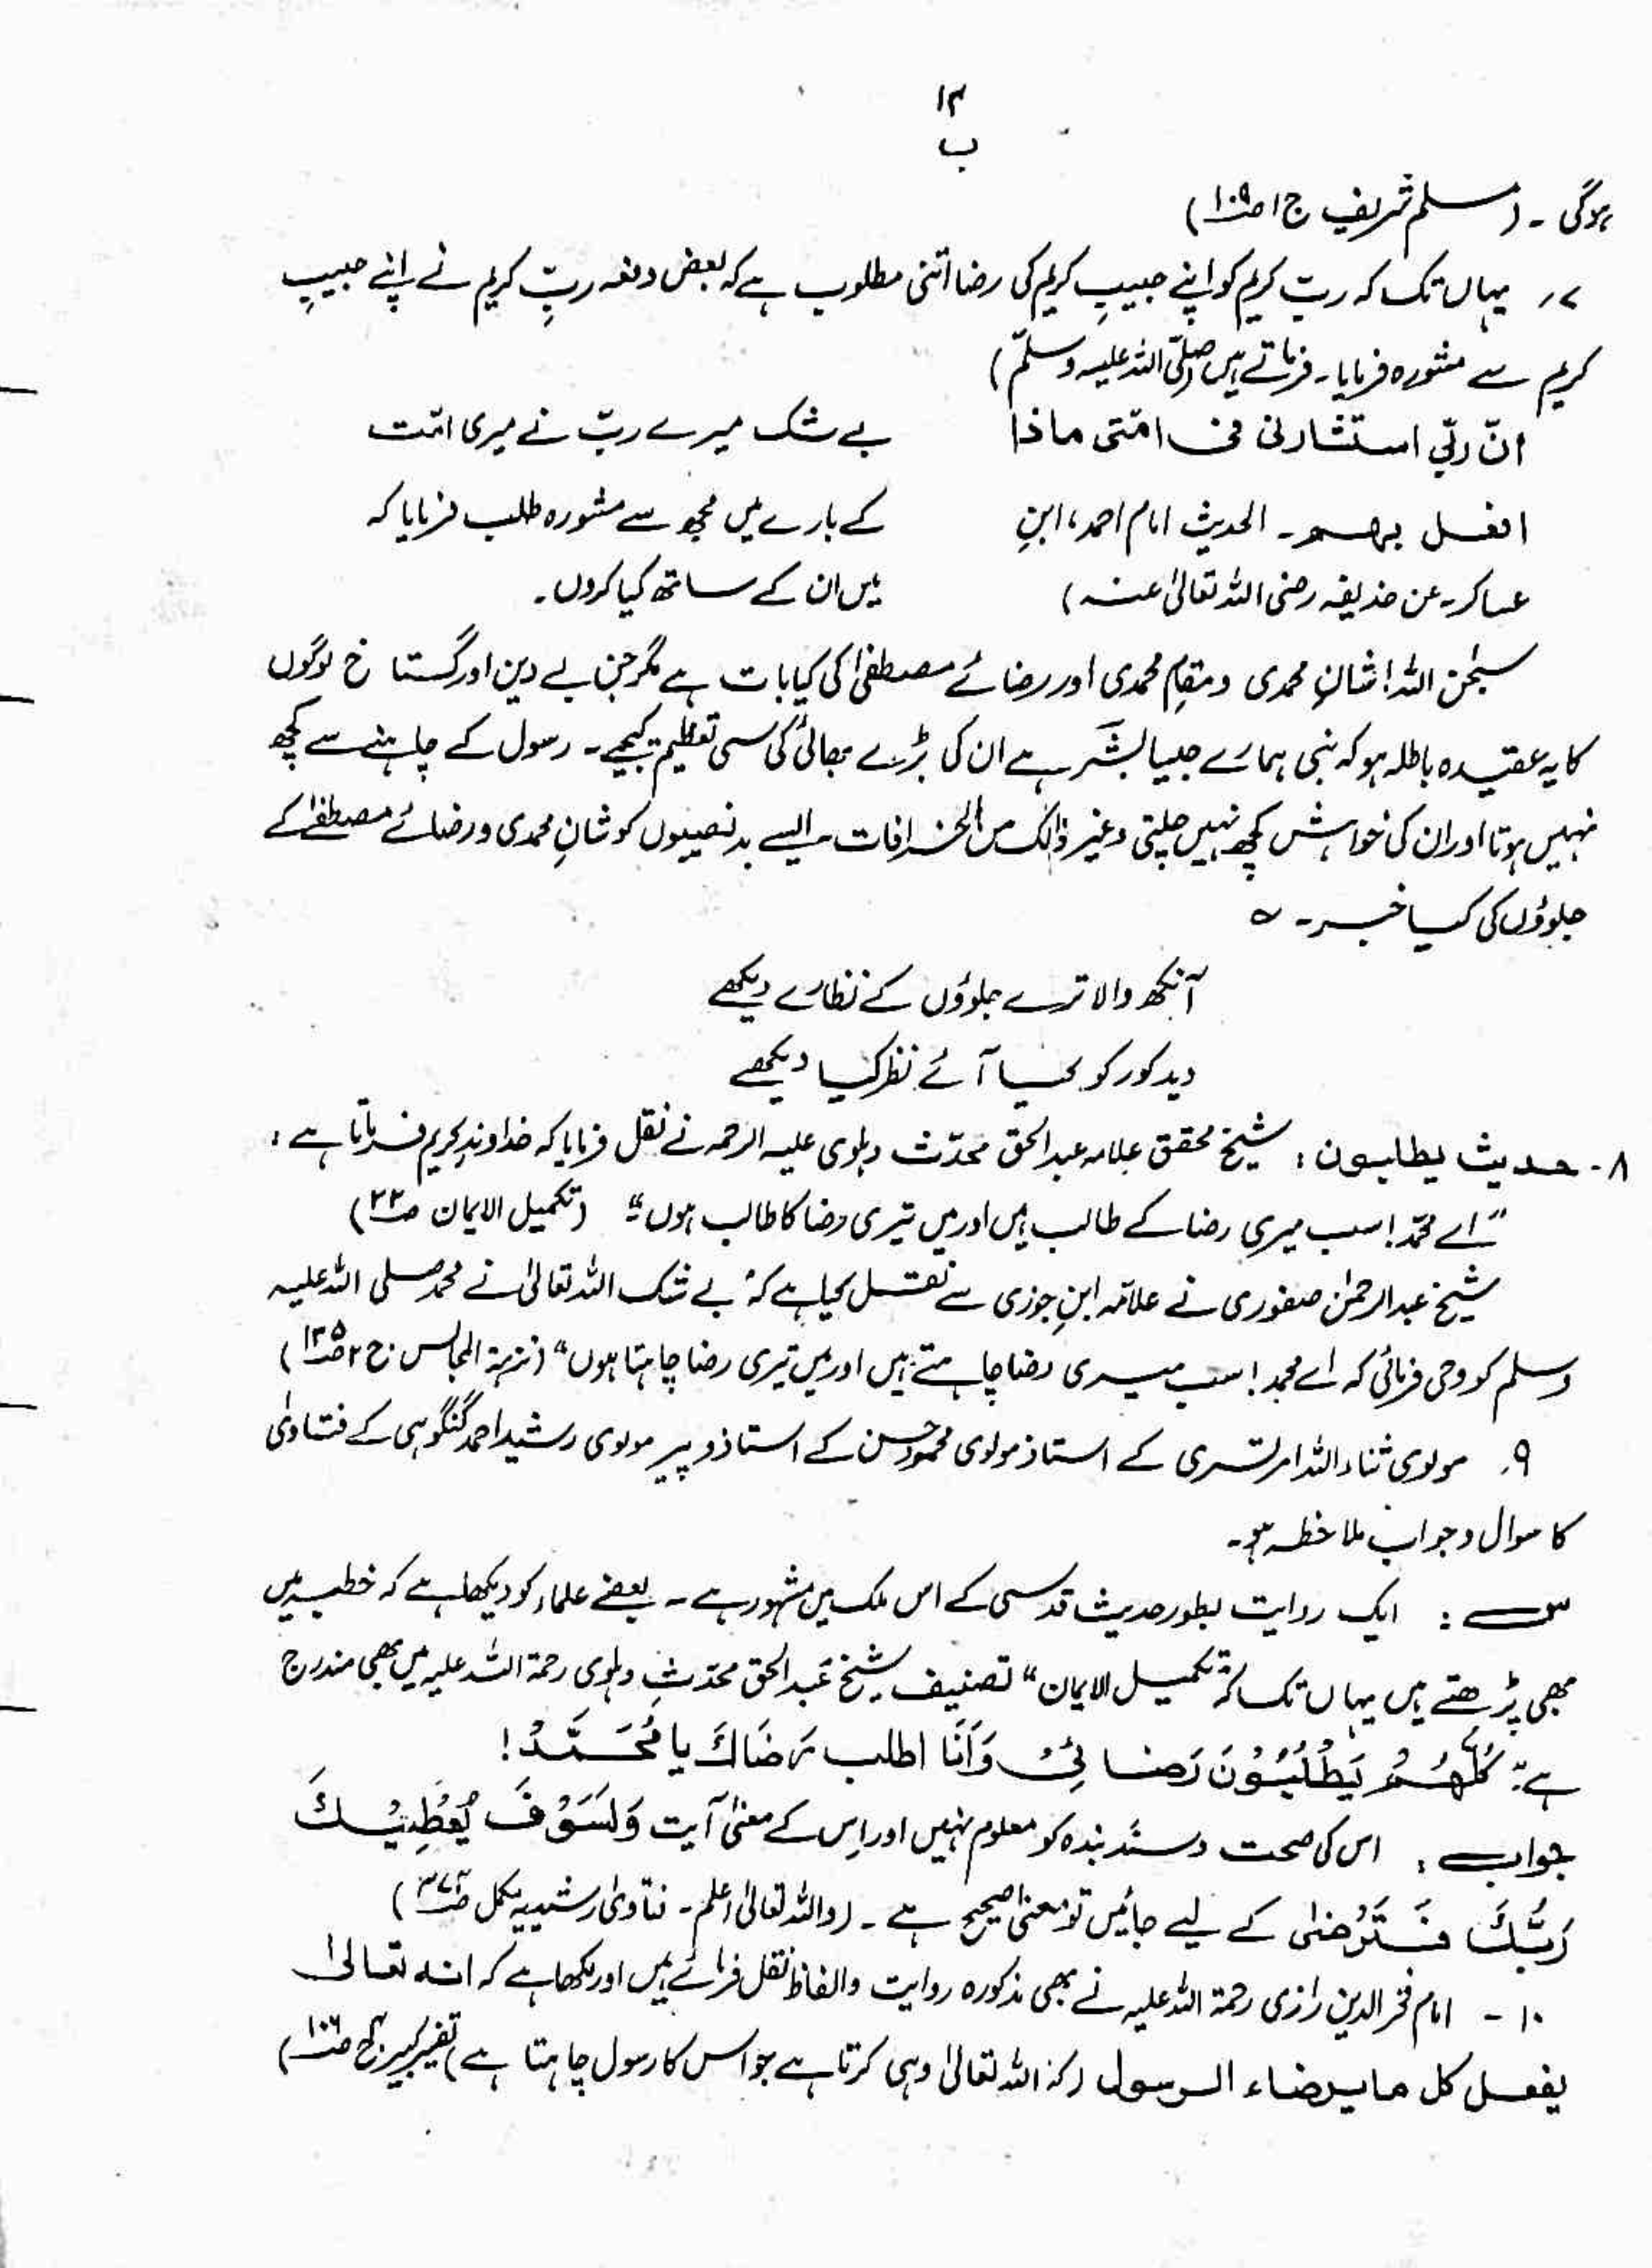 ۱۲
ب
ہوگی ۔ (مسلم شریف ج ۱ ص۱۰۹)
۷۔ یہاں تک کہ ربّ کریم کو اپنے حبیبِ کریم کی رضا اتنی مطلوب ہے کہ بعض دفعہ ربِّ کریم نے اپنے حبیبِ
کریم سے مشورہ فرمایا۔ فرماتے ہیں (صلّی اللہ علیہ وسلّم)
انّ ربّی استشارنی فی امّتی ماذا بے شک میرے ربّ نے میری امّت
افعل بہم ۔ الحدیث امام احمد، ابنِ کے بارے میں مجھ سے مشورہ طلب فرمایا کہ
عساکر۔ عن حذیفہ رضی اللہ تعالیٰ عنہ) میں ان کے ساتھ کیا کروں۔
سبحٰن اللہ! شانِ محمدی و مقامِ محمدی اور رضائے مصطفیٰ کی کیا بات ہے مگر جن بے دین اور گستاخ لوگوں
کا یہ عقیدہ باطلہ ہو کہ نبی ہمارے جیسا بشر ہے ان کی بڑے بھائی کی سی تعظیم کیجیے۔ رسول کے چاہنے سے کچھ
نہیں ہوتا اور ان کی خواہش کچھ نہیں چلتی وغیر ذالک من الخرافات۔ ایسے بدنصیبوں کو شانِ محمدی و رضائے مصطفےٰ کے
جلوؤں کی کیا خبر۔ ؎
آنکھ والا ترے جلوؤں کے نظارے دیکھے
دید کور کو کیا آئے نظر کیا دیکھے
۸۔ حدیث یطلبون : شیخ محقق علامہ عبدالحق محدّث دہلوی علیہ الرحمہ نے نقل فرمایا کہ خداوندِ کریم فرماتا ہے :
”اے محمّد! سب میری رضا کے طالب ہیں اور میں تیری رضا کا طالب ہوں“ (تکمیل الایمان ص۲۲)
شیخ عبدالرحمٰن صفوری نے علامّہ ابنِ جوزی سے نقل کیا ہے کہ ”بے شک اللہ تعالیٰ نے محمد صلی اللہ علیہ
وسلم کو وحی فرمائی کہ اے محمد! سب میری رضا چاہتے ہیں اور میں تیری رضا چاہتا ہوں“ (نزہۃ المجالس ج ۲ ص۱۳۵)
۹۔ مولوی ثناء اللہ امرتسری کے استاذ مولوی محمود حسن کے استاذ و پیر مولوی رشید احمد گنگوہی کے فتاویٰ
کا سوال و جواب ملاحظہ ہو۔
س : ایک روایت بطور حدیث قدسی کے اس ملک میں مشہور ہے ۔ بعضے علماء کو دیکھا ہے کہ خطبہ میں
بھی پڑھتے ہیں یہاں تک کہ ”تکمیل الایمان“ تصنیف شیخ عبدالحق محدّثِ دہلوی رحمۃ اللہ علیہ میں بھی مندرج
ہے: کُلُّھُمْ یَطْلُبُوْنَ رَضَائِیْ وَاَنَا اطلب رَضَاكَ یا مُحَمَّدُ !
جواب : اس کی صحت و سند بندہ کو معلوم نہیں اور اِس کے معنیٰ آیت وَلَسَوْفَ یُعْطِیْكَ
رَبُّكَ فَتَرْضٰی کے لیے جائیں تو معنیٰ صحیح ہے ۔ (واللہ تعالیٰ اعلم۔ فتاویٰ رشیدیہ مکمل ص۳۷۲)
۱۰ - امام فخر الدین رازی رحمۃ اللہ علیہ نے بھی مذکورہ روایت والفاظ نقل فرمائے ہیں اور لکھا ہے کہ انہ تعالیٰ
یفعل کل ما یرضاء الرسول (کہ اللہ تعالیٰ وہی کرتا ہے جو اس کا رسول چاہتا ہے) تفسیر کبیر ج ص۱۰۶)